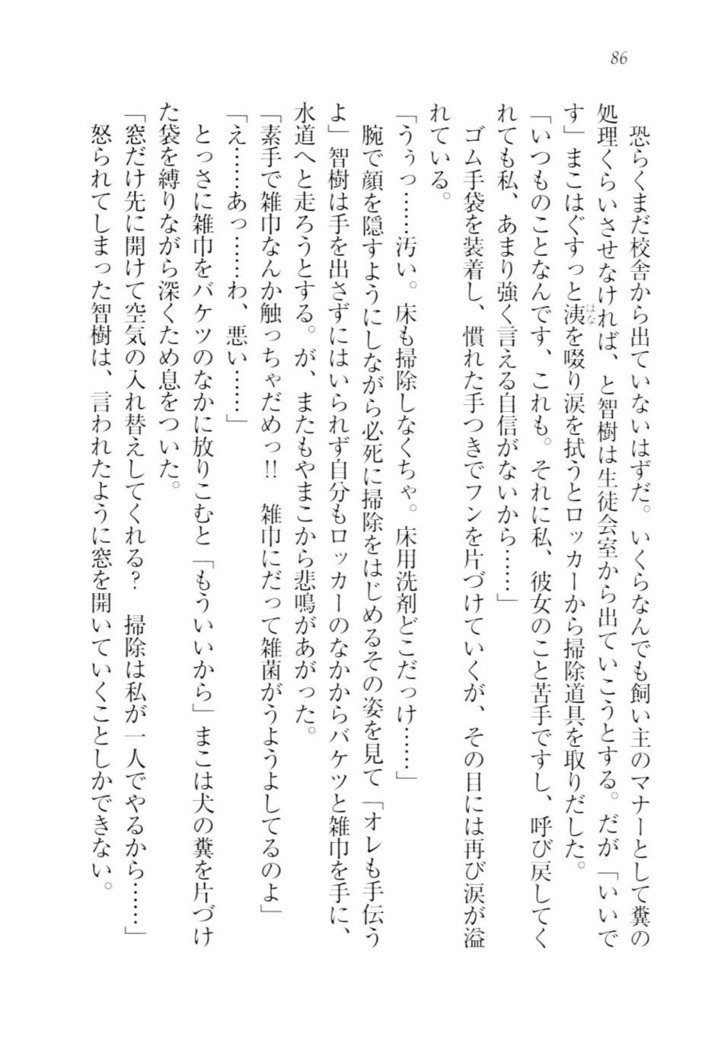 86
恐らくまだ校舎から出ていないはずだ。いくらなんでも飼い主のマナーとして糞の
処理くらいさせなければ、と智樹は生徒会室から出ていこうとする。だが「いいで
す」まこはぐすっと洟を啜り涙を拭うとロッカーから掃除道具を取りだした。
「いつものことなんです、これも。それに私、彼女のこと苦手ですし、呼び戻してく
れても私、あまり強く言える自信がないから……」
ゴム手袋を装着し、慣れた手つきでフンを片づけていくが、その目には再び涙が溢
れている。
「うぅっ……汚い。床も掃除しなくちゃ。床用洗剤どこだっけ……」
腕で顔を隠すようにしながら必死に掃除をはじめるその姿を見て「オレも手伝う
よ」智樹は手を出さずにはいられず自分もロッカーのなかからバケツと雑巾を手に、
水道へと走ろうとする。が、またもやまこから悲鳴があがった。
「素手で雑巾なんか触っちゃだめっ!!　雑巾にだって雑菌がうようよしてるのよ」
「え……あっ……わ、悪い……」
とっさに雑巾をバケツのなかに放りこむと「もういいから」まこは犬の糞を片づけ
た袋を縛りながら深くため息をついた。
「窓だけ先に開けて空気の入れ替えしてくれる?　掃除は私が一人でやるから……」
怒られてしまった智樹は、言われたように窓を開いていくことしかできない。